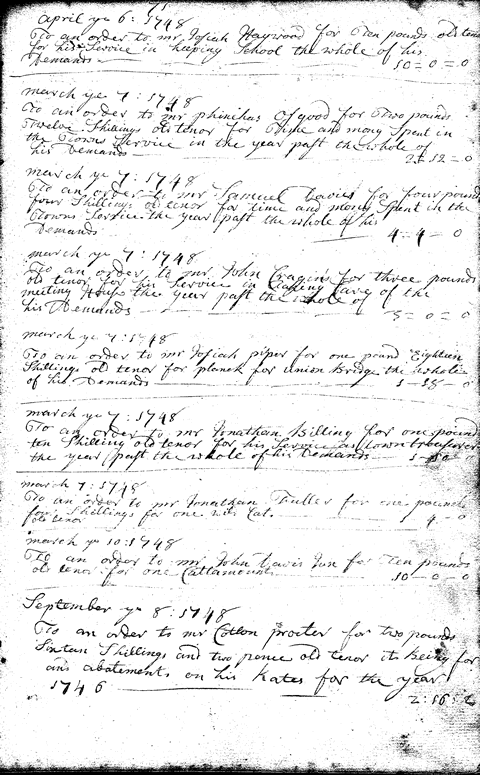 April ye 6 : 1748
To an order to mr Josiah Haywood for Ten pounds old tenor
for his Service in keeping School the whole of his
Demands - 10 = 0 = 0
march ye 7 : 1748
To an order to mr phinihas osgood for Two pounds
Twelve Shillings old tenor for Time and mony Spent in
the Towns Service in the year past the whole of
his Demands 2 = 12 = 0
march ye 7 : 1748
To an order to mr Samuel Davis for four pounds
four Shillings old tenor for time and mony Spent in the
Towns Service the year past the whole of his
Demands 4 - 4 - 0
march ye 7 : 1748
To an order to mr John Cragin for three pounds
old tenor for his Service in taking Care of the
meeting House the year past the whole of
his Demands 3 = 0 = 0
march ye 7 : 1748
To an order to mr Josiah piper for one pound Eighteen
Shillings old tenor for plank for union Bridge the whole
of his Demands 1 - 18 - 0
march ye 7 : 1748
To an order to mr Jonathan Billing for one pound
ten Shilling old tenor for his Service as town treasurer
the year past the whole of his Demands 1 - 10
march 7 : 1748
To an order to mr Jonathan Fuller for one pound
four Shillings for one Cat.
old tenor 1 4 - 0
march ye 10 : 1748
To an order to mr John Davis Jun for Ten pounds
old tenor for one Cattamount 10 - 0 - 0
September ye 8 : 1748
To an order to mr Cotton procter for two pounds
Sixtan Shillings and two pence old tenor its Being for
an abatements on his Rates for the year
1746 2 : 16 : 2